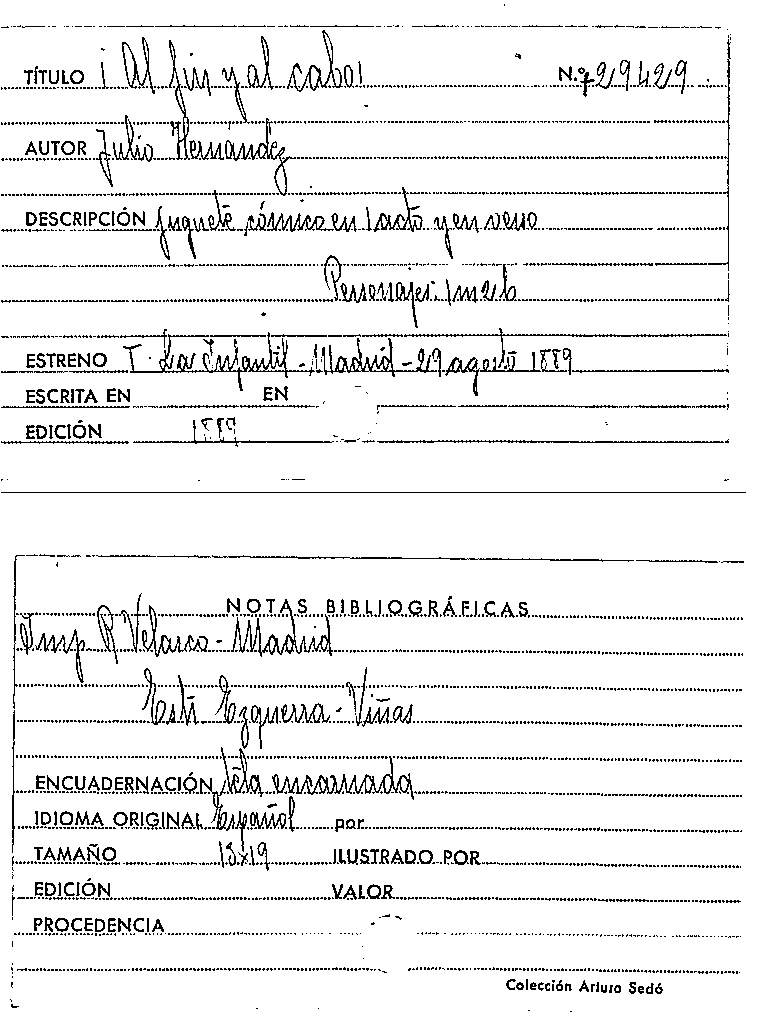 TÍTULO ¡Al fin y al cabo! N.º 29429.
AUTOR Julio Hernández
DESCRIPCIÓN Juguete cómico en 1 acto y en verso
Personajes: 1m2h
ESTRENO T. La Infantil - Madrid - 29 agosto 1889
ESCRITA EN EN
EDICIÓN 1889
NOTAS BIBLIOGRÁFICAS
Imp R Velasco - Madrid
Estr. Ezquerra - Viñas
ENCUADERNACIÓN tela encarnada
IDIOMA ORIGINAL Español por
TAMAÑO 13x19 ILUSTRADO POR
EDICIÓN VALOR
PROCEDENCIA
Colección Arturo Sedó